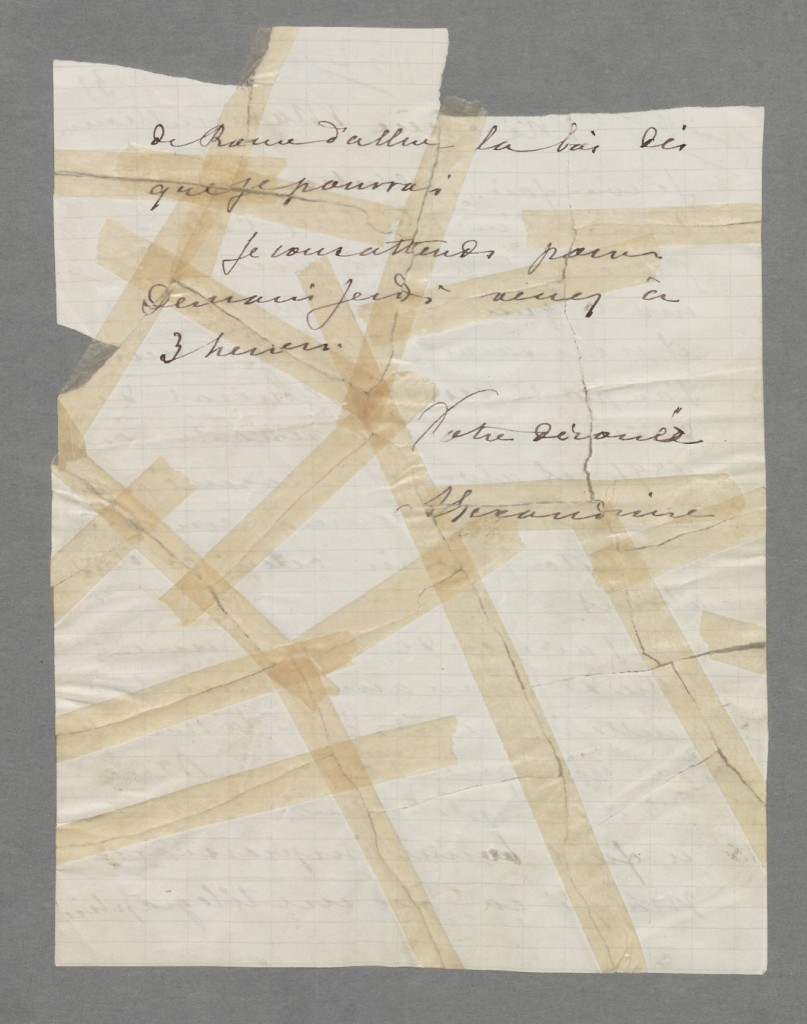 de Rome d'aller la bas dès
que je pourrai
Je vous attends pour
Demain Jeudi venez à
3 heures.
Votre dévouée